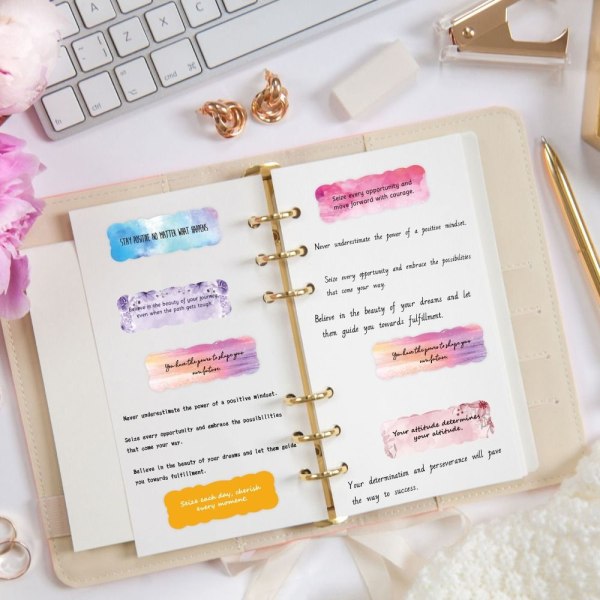 STAY POSITIVE NO MATTER WHAT HAPPENS
Believe in the beauty of your journey,
even when the path gets tough.
You have the power to shape your
own future.
Never underestimate the power of a positive mindset.
Seize every opportunity and embrace the possibilities
that come your way.
Believe in the beauty of your dreams and let them guide
you towards fulfillment.
Seize each day, cherish
every moment.
Seize every opportunity and
move forward with courage.
Never underestimate the power of a positive mindset.
Seize every opportunity and embrace the possibilities
that come your way.
Believe in the beauty of your dreams and let
them guide you towards fulfillment.
You have the power to shape your
own future.
Your attitude determines
your altitude.
Your determination and perseverance will pave
the way to success.
fn
ctrl
alt
cmd
⌘
Z
X
C